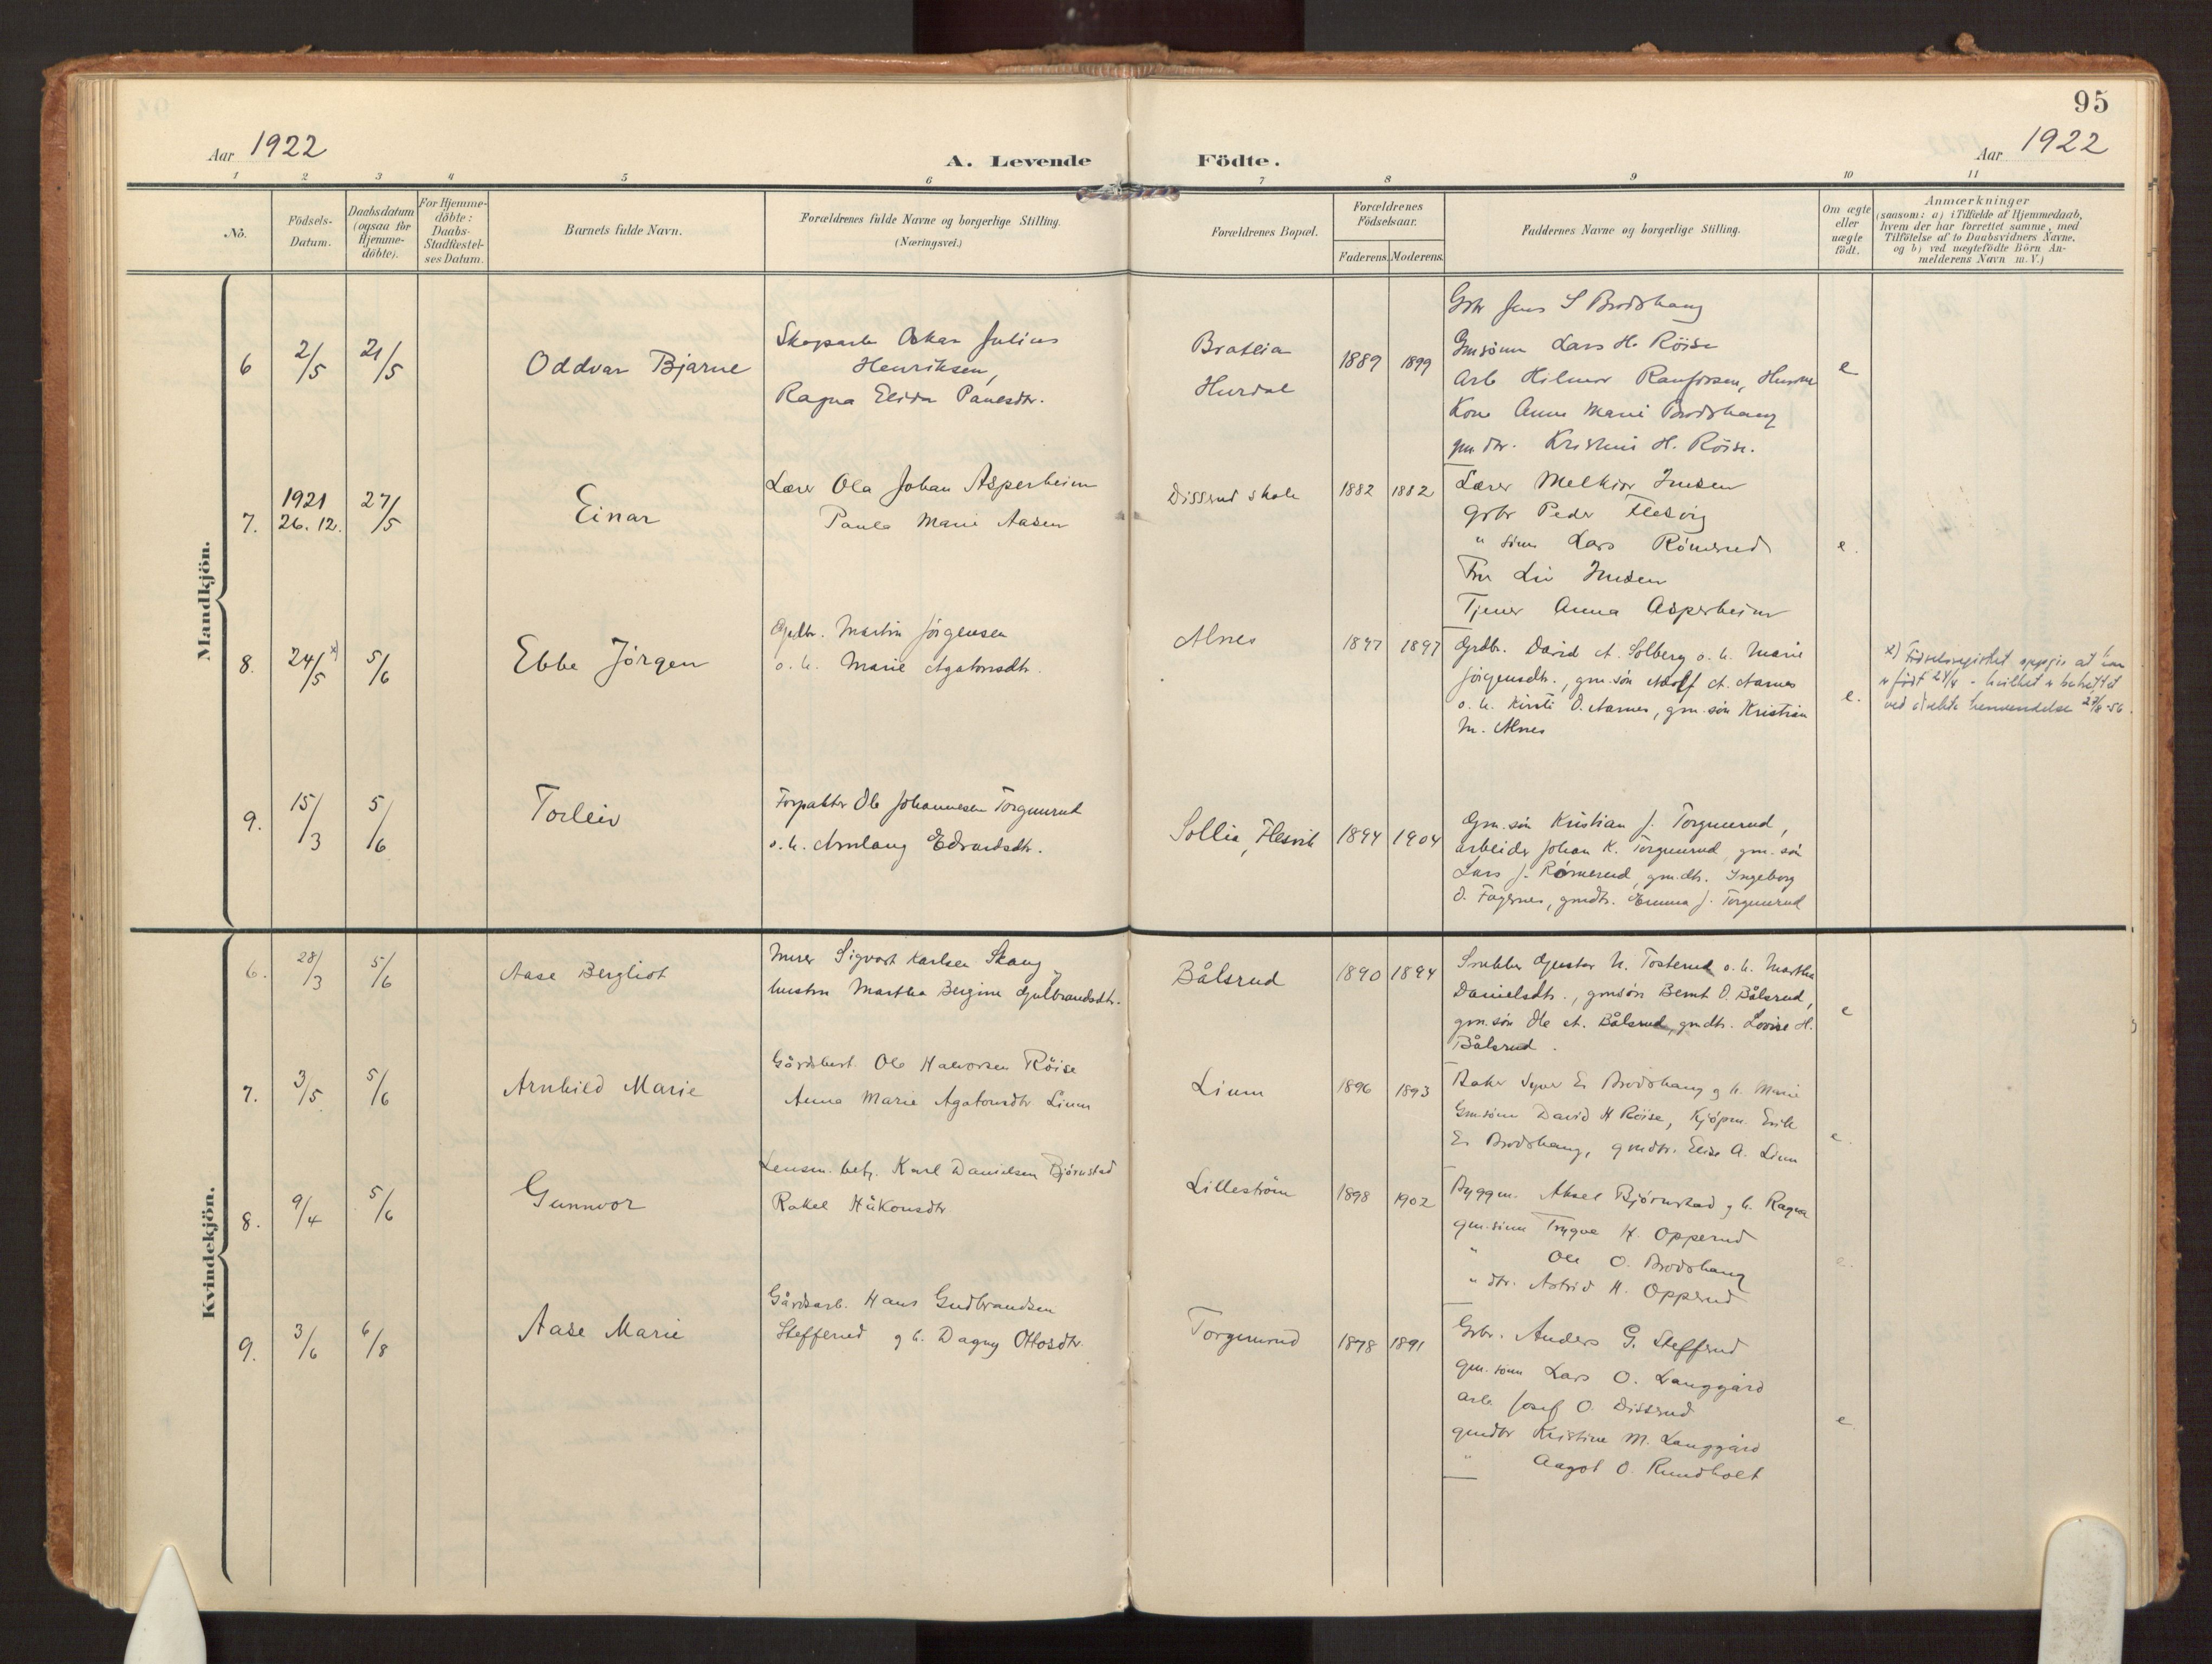 95
Aar 1922
A. Levende Födte.
Aar 1922
1 2 3 4 5 6 7 8 9 10 11
No.
Födsels-
Datum.
Daabsdatum
(ogsaa for
Hjemme-
döbte).
For Hjemme-
döbte:
Daabs-
Stadfæstel-
ses Datum.
Barnets fulde Navn.
Forældrenes fulde Navne og borgerlige Stilling.
(Næringsvei.)
Forældrenes Bopæl.
Forældrenes
Födselsaar.
Faderens. Moderens.
Faddernes Navne og borgerlige Stilling.
Om ægte
eller
uægte
födt.
Anmærkninger
(saasom: a) i Tilfælde af Hjemmedaab,
hvem der har forrettet samme, med
Tilföielse af to Daabsvidners Navne,
og b) ved uægtefödte Börn An-
melderens Navn m. V.)
Mandkjön.
6
2/5
21/5
Oddvar Bjarne
Skogsarb Oskar Julius
Henriksen,
Ragna Elida Paulsdtr.
Bratlia
Hurdal
1889 1899
Gbr Jens S Brodshaug
Gmsønn Lars H. Röise
Arb Hilmar
Kone Anne Marie Brodshaug
gm dtr. Kristine H. Röise.
e
7.
1921
26.12.
27/5
Einar
Lærer Ola Johan Asperheim
Paula Marie Aasen
Disserud skole
1882 1882
Lærer Melkior
Gbr Peder Flesvig
" sönn Lars Römerud
Fru Liv
Tjener Anna Asperheim
e.
8.
24/5 x)
5/6
Ebbe Jörgen
Grdbr. Martin Jörgensen
o. h. Marie Agatonsdtr.
Alnes
1897 1897
Grdbr. David A. Solberg o. h. Marie
Jörgensdtr., gm.sön Adolf A. Aarnes
o. h. Kirsti O. Aarnes, gm.sön Kristian
M. Alnes
e.
x) Födselsregistret oppgir at han
er födt 24/4 - hvilket er bekreftet
ved direkte henvendelse 29/8-56.
9.
15/3
5/6
Torleiv
Forpakter Ole Johannesen Torgunrud
o. h. Arnlaug Edvardsdtr.
Sollia, Flesvik
1894 1904
Gm. sön Kristian J. Torgunrud,
arbeider Johan K. Torgunrud, gm. sön
Lars J. Römerud, gm.dtr. Ingeborg
O. Fagernes, gmdtr. Emma J. Torgunrud
Kvindekjön.
6.
28/3
5/6
Aase Bergliot
Murer Sigvart Karlsen Skaug
hustru Martha Bergine Gulbrandsdtr.
Bålsrud
1890 1894
Snekker Gustav N. Tosterud o. h. Martha
Danielsdtr., gmsön Bernt O. Bålsrud,
gm.sön Ole A. Bålsrud, gmdtr. Lovise H.
Bålsrud.
e
7.
3/5
5/6
Arnhild Marie
Gårdsbest. Ole Halvorsen Röise
Anna Marie Agatonsdtr Lium
Lium
1896 1893
Baker Syver E. Brodshaug g h. Marie
Gmsönn David H Röise, Kjöpm. Erik
E. Brodshaug, gmdtr. Elise A. Lium
e.
8.
9/4
5/6
Gunnvor
Lensm. betj. Karl Danielsen Björnstad
Rakel Håkonsdtr
Lilleström
1898 1902
Byggm. Aksel Björnstad g h. Ragna
gm.sönn Trygve H. Opperud
" Ole O. Brodshaug
" dtr. Astrid H. Opperud
e.
9.
3/6
6/8
Aase Marie
Gårdsarb. Hans Gudbrandsen
Stefferud g h. Dagny Ottosdtr.
Torgunrud
1878 1891
Gbr. Anders G. Stefferud
gm. sönn Lars O. Langgård
arb. Josef O. Disserud
gmdtr Kristine M. Langgård
" Aagot O. Rundholt
e